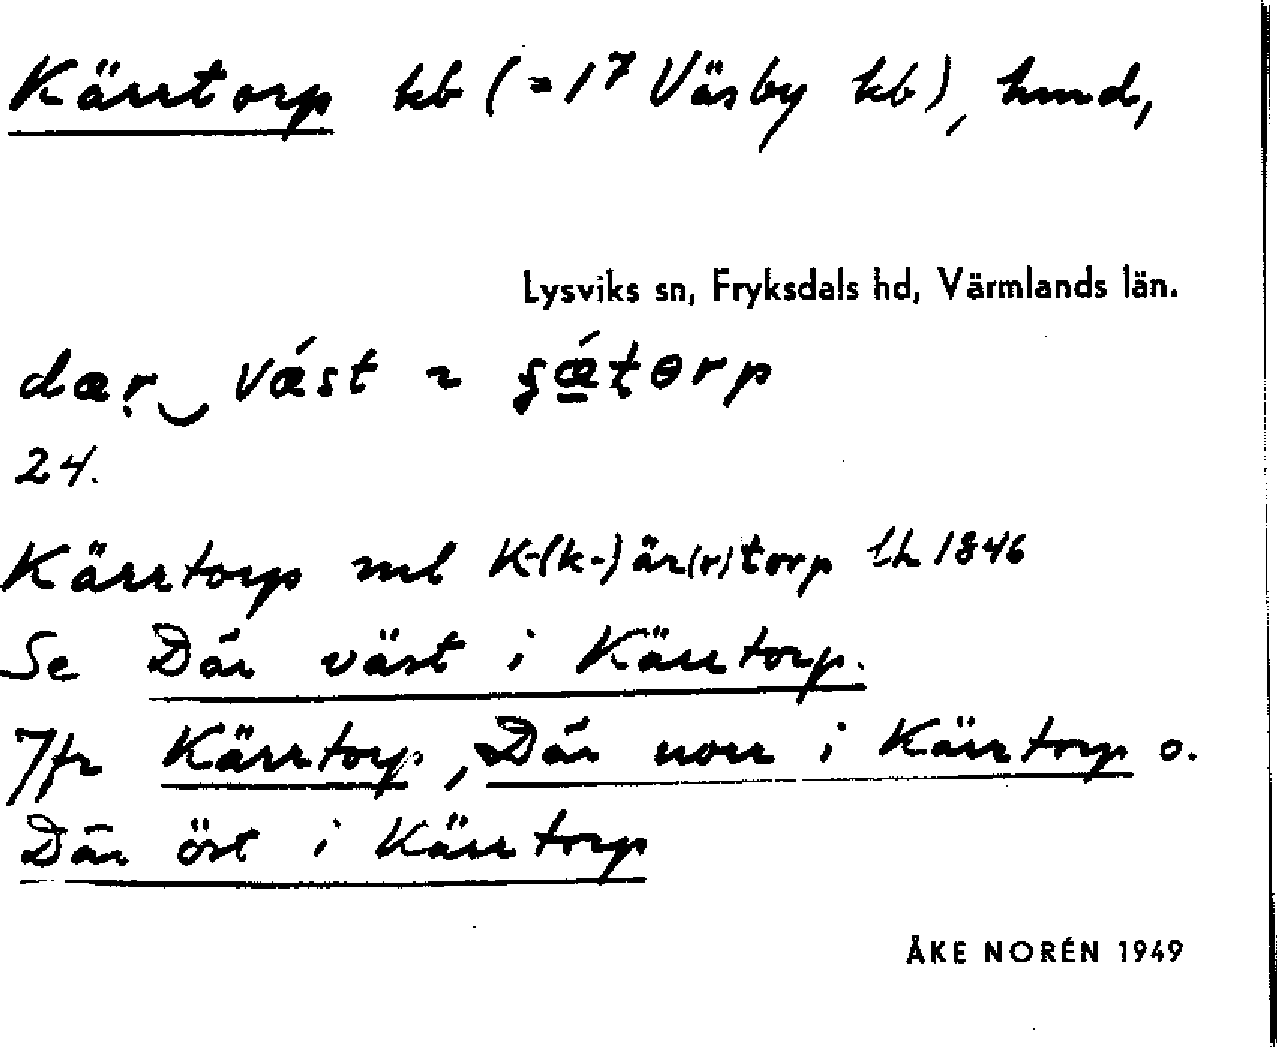 Kärrtorp hb (=1⁷ Väsby hb), hmd,
Lysviks sn, Fryksdals hd, Värmlands län.
dær‿ vǽst
24.
Kärrtorp ml K-(k-)är(r)torp lh 1846
Se Där väst i Kärrtorp.
Jfr Kärrtorp, Där norr i Kärrtorp o.
Där öst i Kärrtorp
ÅKE NORÉN 1949